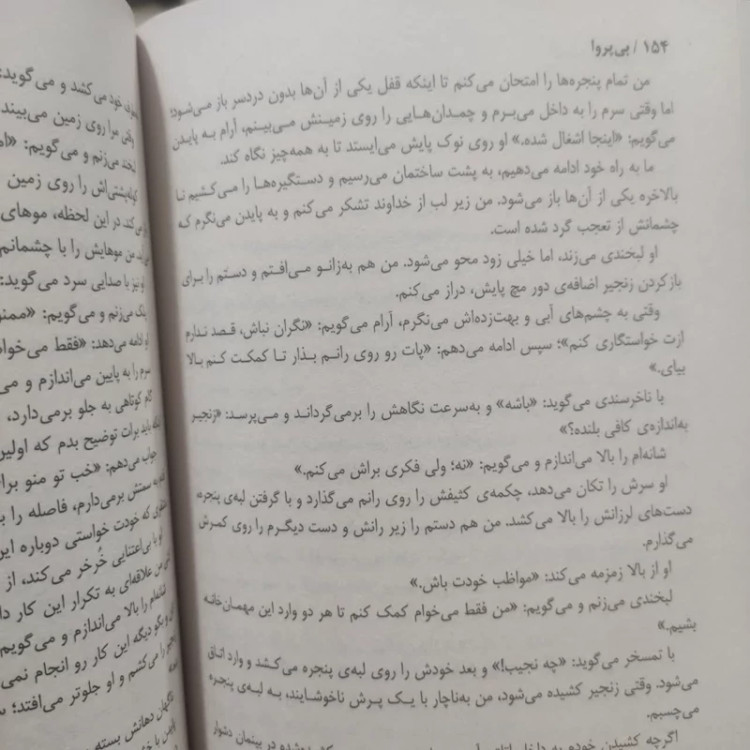 ۱۵۴ / بی‌پروا
من تمام پنجره‌ها را امتحان می‌کنم تا اینکه قفل یکی از آن‌ها بدون دردسر باز می‌شود؛
اما وقتی سرم را به داخل می‌برم و چمدان‌هایی را روی زمینش می‌بینم، آرام به پایدن
می‌گویم: «اینجا اشغال شده.» او روی نوک پایش می‌ایستد تا به همه‌چیز نگاه کند.
ما به راه خود ادامه می‌دهیم، به پشت ساختمان می‌رسیم و دستگیره‌ها را می‌کشیم تا
بالاخره یکی از آن‌ها باز می‌شود. من زیر لب از خداوند تشکر می‌کنم و به پایدن می‌نگرم که
چشمانش از تعجب گرد شده است.
او لبخندی می‌زند، اما خیلی زود محو می‌شود. من هم به‌زانو می‌افتم و دستم را برای
بازکردن زنجیر اضافه‌ی دور مچ پایش، دراز می‌کنم.
وقتی به چشم‌های آبی و بهت‌زده‌اش می‌نگرم، آرام می‌گویم: «نگران نباش، قصد ندارم
ازت خواستگاری کنم»؛ سپس ادامه می‌دهم: «پات رو روی رانم بذار تا کمکت کنم بالا
بیای.»
با ناخرسندی می‌گوید: «باشه» و به‌سرعت نگاهش را برمی‌گرداند و می‌پرسد: «زنجیر
به‌اندازه‌ی کافی بلنده؟»
شانه‌ام را بالا می‌اندازم و می‌گویم: «نه؛ ولی فکری براش می‌کنم.»
او سرش را تکان می‌دهد، چکمه‌ی کثیفش را روی رانم می‌گذارد و با گرفتن لبه‌ی پنجره،
دست‌های لرزانش را بالا می‌کشد. من هم دستم را زیر رانش و دست دیگرم را روی کمرش
می‌گذارم.
او از بالا زمزمه می‌کند: «مواظب خودت باش.»
لبخندی می‌زنم و می‌گویم: «من فقط می‌خوام کمک کنم تا هر دو وارد این مهمان‌خانه
بشیم.»
با تمسخر می‌گوید: «چه نجیب!» و بعد خودش را روی لبه‌ی پنجره می‌کشد و وارد اتاق
می‌شود. وقتی زنجیر کشیده می‌شود، من به‌ناچار با یک پرش ناخوشایند، به لبه‌ی پنجره
می‌چسبم.
اگرچه کشیدن خودم به داخل
خود می‌کشد و می‌گوید:
وقتی مرا روی زمین می‌بیند
می‌زنم و می‌گویم:
را روی زمین
در این لحظه، موهای
من موهایش را با چشمانم
نیز با صدایی سرد می‌گوید:
می‌زنم و می‌گویم: «ممنو
ادامه می‌دهد: «فقط می‌خوا
سرم را به پایین می‌اندازم و می
گام کوتاهی به جلو برمی‌دارد،
باید برات توضیح بدم که اولین
جواب می‌دهم: «خب تو منو برا
به سمتش برمی‌دارم، فاصله را
که خودت خواستی دوباره این
با بی‌اعتنایی خُرخر می‌کند، از
علاقه‌ای به تکرار این کار
را بالا می‌اندازم و می‌گویم
دیگه این کار رو انجام نمی
را می‌کشم و او جلوتر می‌افتد؛
ناگهان دهانش بسته